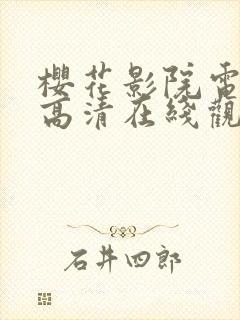 櫻花影院電
高清在綫觀
石井四郎